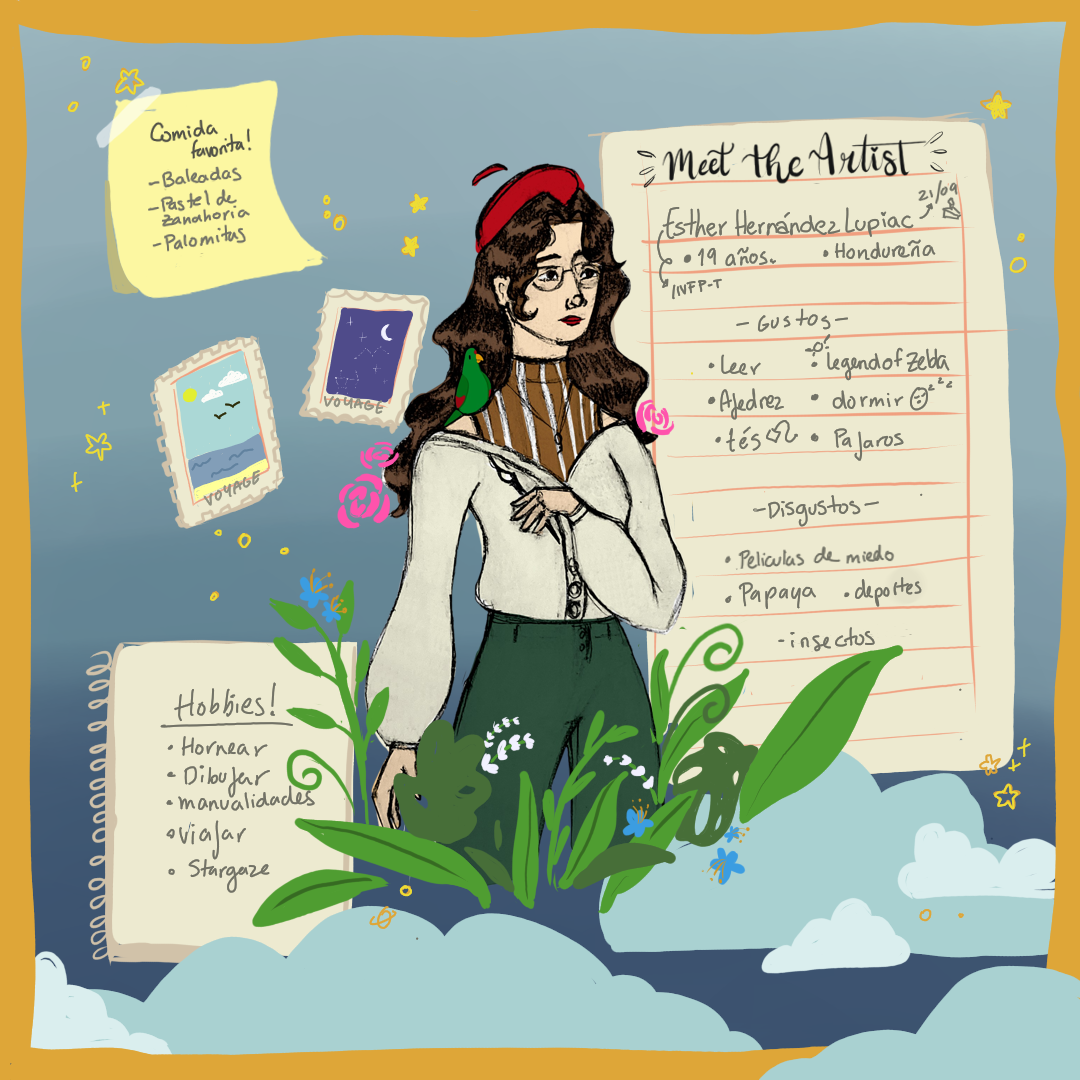 Comida
favorita!
-Baleadas
-Pastel de
zanahoria
-Palomitas
VOYAGE
VOYAGE
Meet the Artist
21/09
Esther Hernández Lupiac
• 19 años. • Hondureña
INFP-T
- Gustos -
• Leer • legend of Zelda
• Ajedrez • dormir zzz
• tés • Pajaros
- Disgustos -
• Peliculas de miedo
• Papaya • deportes
- insectos
Hobbies!
• Hornear
• Dibujar
• manualidades
• viajar
• Stargaze